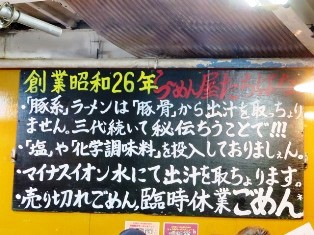 創業昭和26年 らーめん屋
・「豚系」ラーメンは「豚骨」から出汁を取っちょり
ません。三代続いて秘伝ちうことで!!!
・「塩」や「化学調味料」を投入しておりましぇん。
・マイナスイオン水にて出汁を取ちょります。
・売り切れごめん、臨時休業ごめんネ